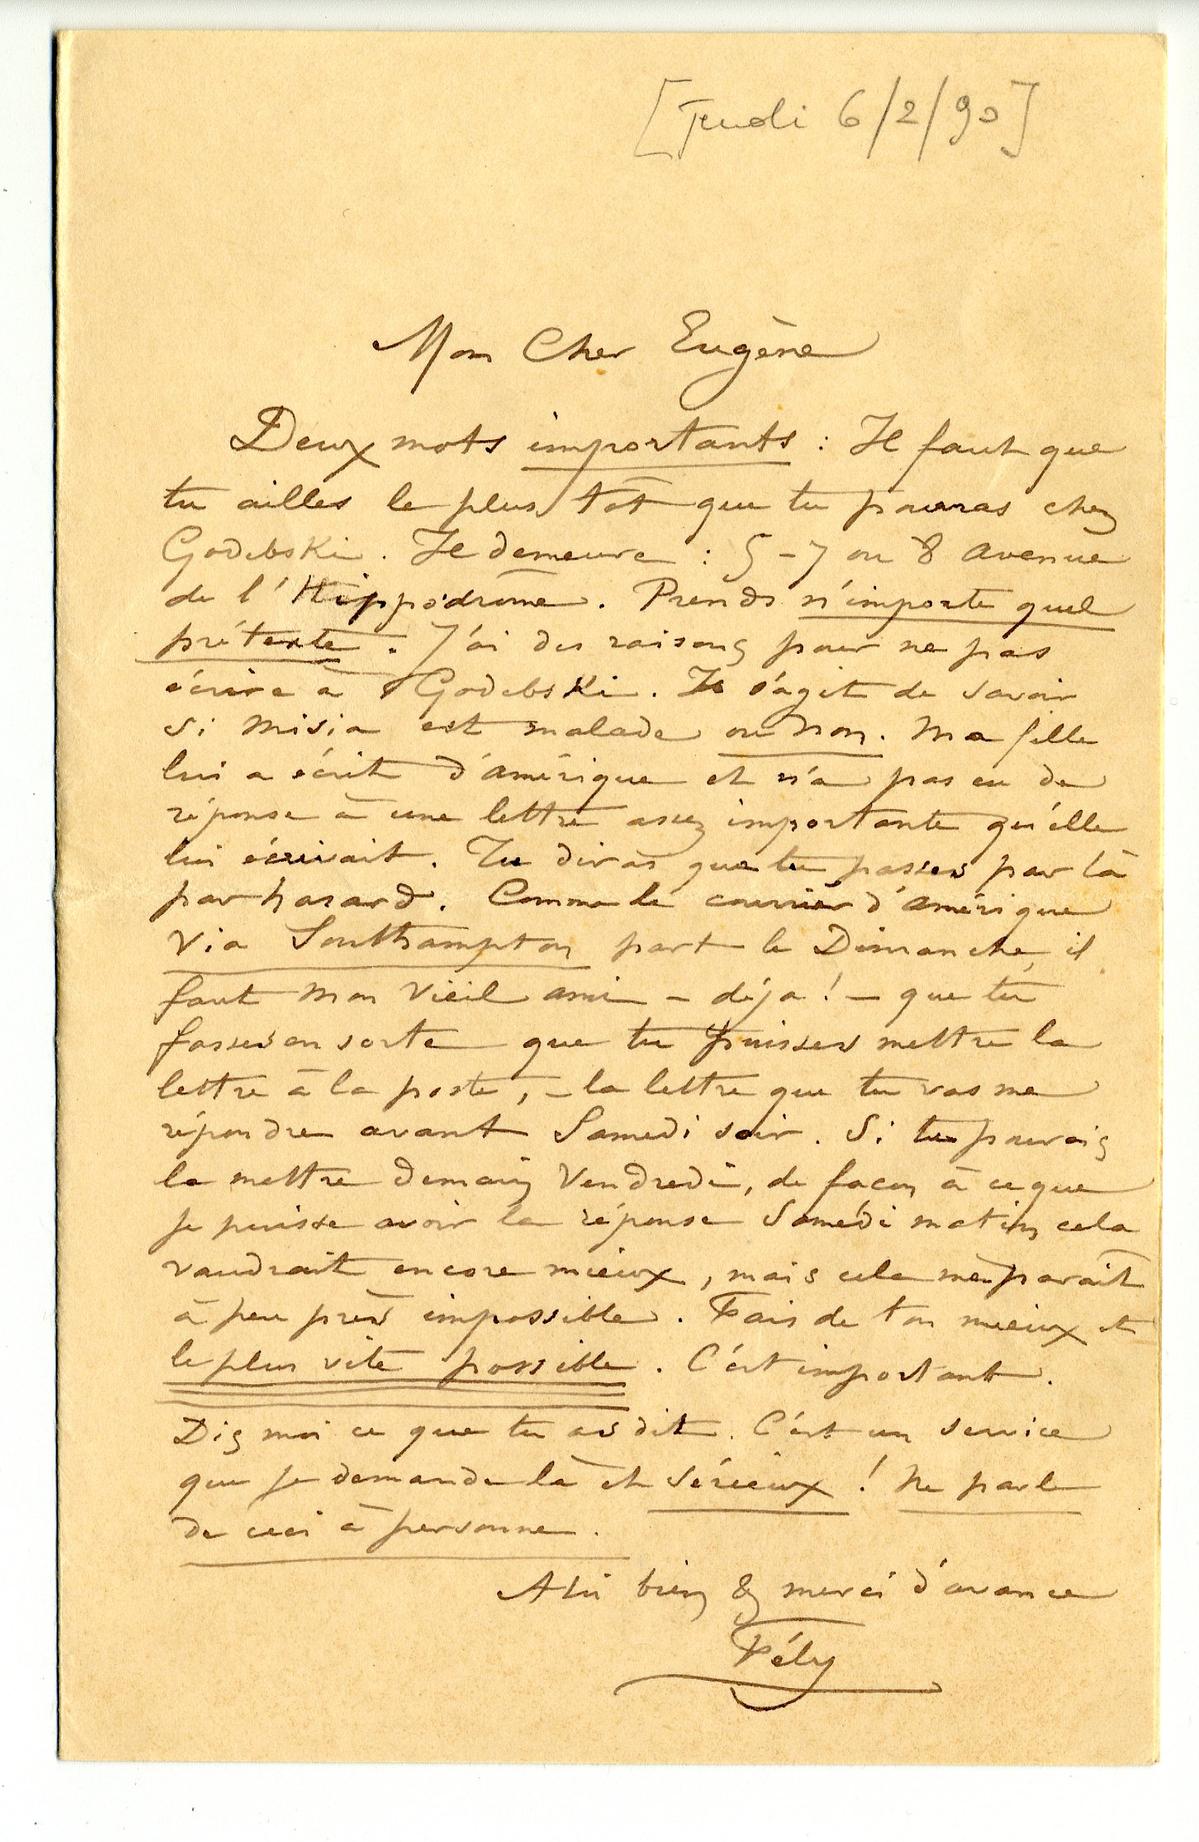 [Jeudi 6/2/90]
Mon Cher Eugène
Deux mots importants : Il faut que
tu ailles le plus tôt que tu pourras chez
Godebski. Il demeure : 5-7 ou 8 avenue
de l'Hippodrome. Prends n'importe quel
prétexte. J'ai des raisons pour ne pas
écrire à Godebski. Il s'agit de savoir
si Misia est malade ou non. Ma fille
lui a écrit d'amérique et n'a pas eu de
réponse à une lettre assez importante qu'elle
lui écrivait. Tu diras que tu passes par là
par hasard. Comme le courrier d'amérique
via Southampton part le Dimanche, il
faut mon vieil ami – déja ! – que tu
fasses en sorte que tu puisses mettre la
lettre à la poste, – la lettre que tu vas me
répondre avant Samedi soir. Si tu pouvais
la mettre demain Vendredi, de façon à ce que
je puisse avoir la réponse Samedi matin cela
vaudrait encore mieux, mais cela me paraît
à peu près impossible. Fais de ton mieux et
le plus vite possible. C'est important.
Dis moi ce que tu as dit. C'est un service
que je demande là et sérieux ! Ne parle
de ceci à personne.
A toi bien & merci d'avance
Fély